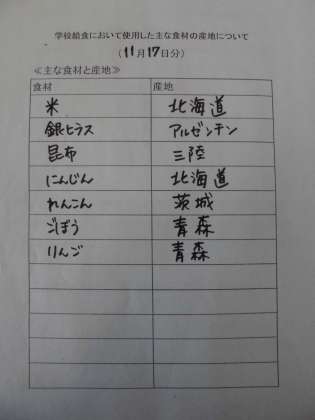 学校給食において使用した主な食材の産地について
(11月17日分)
≪主な食材と産地≫
食材 産地
米 北海道
銀ヒラス アルゼンチン
昆布 三陸
にんじん 北海道
れんこん 茨城
ごぼう 青森
りんご 青森